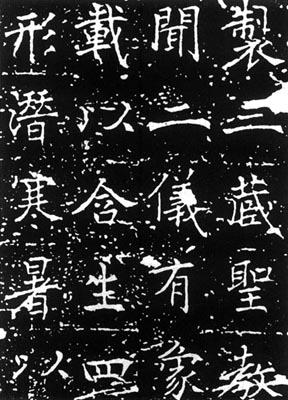 製三藏聖教
聞二儀有象
載以含生四
形潛寒暑以